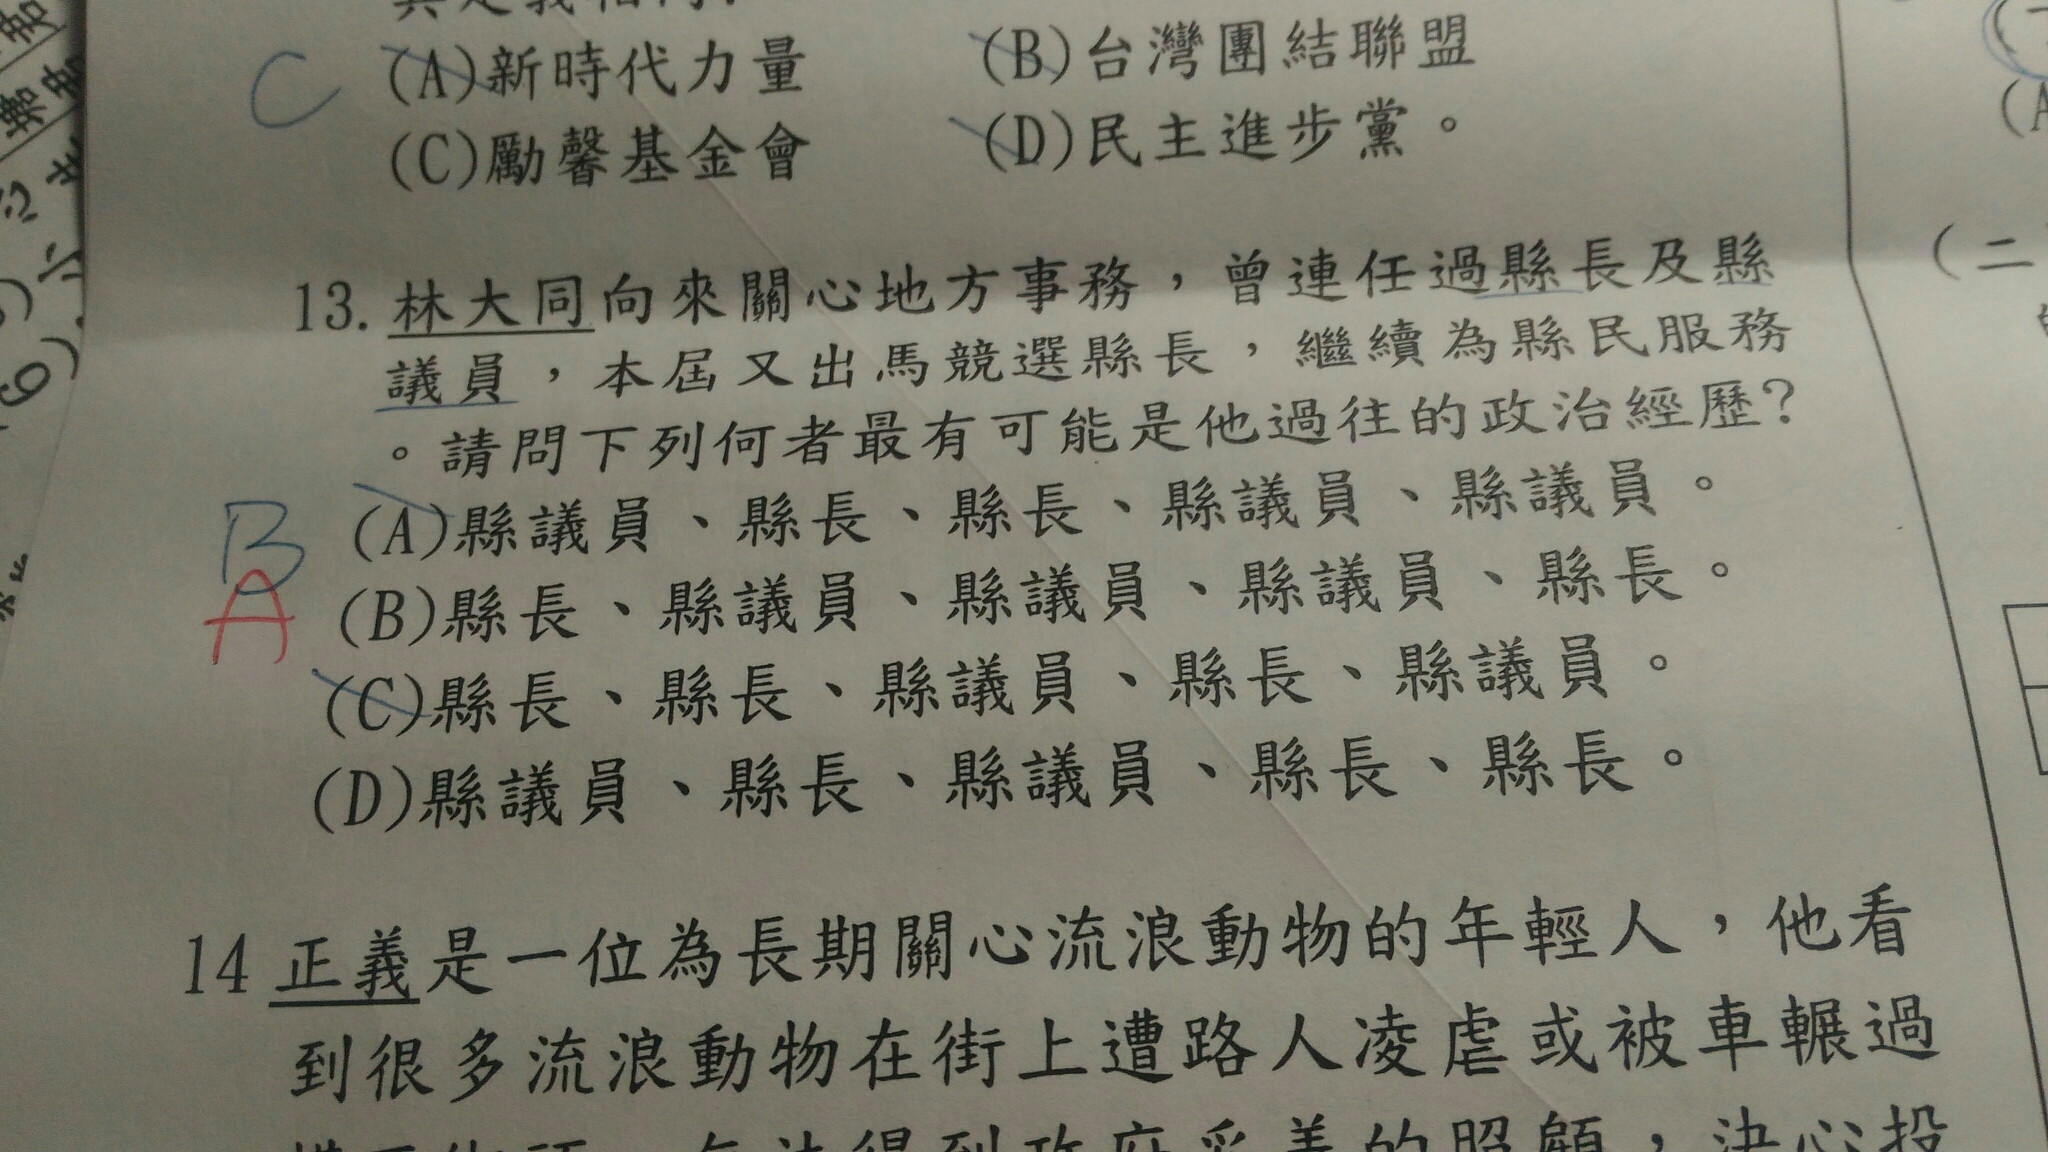 C
(A)新時代力量 (B)台灣團結聯盟
(C)勵馨基金會 (D)民主進步黨。
13. 林大同向來關心地方事務，曾連任過縣長及縣
議員，本屆又出馬競選縣長，繼續為縣民服務
。請問下列何者最有可能是他過往的政治經歷?
B
A
(A)縣議員、縣長、縣長、縣議員、縣議員。
(B)縣長、縣議員、縣議員、縣議員、縣長。
(C)縣長、縣長、縣議員、縣長、縣議員。
(D)縣議員、縣長、縣議員、縣長、縣長。
14 正義是一位為長期關心流浪動物的年輕人，他看
到很多流浪動物在街上遭路人凌虐或被車輾過
(二
(A